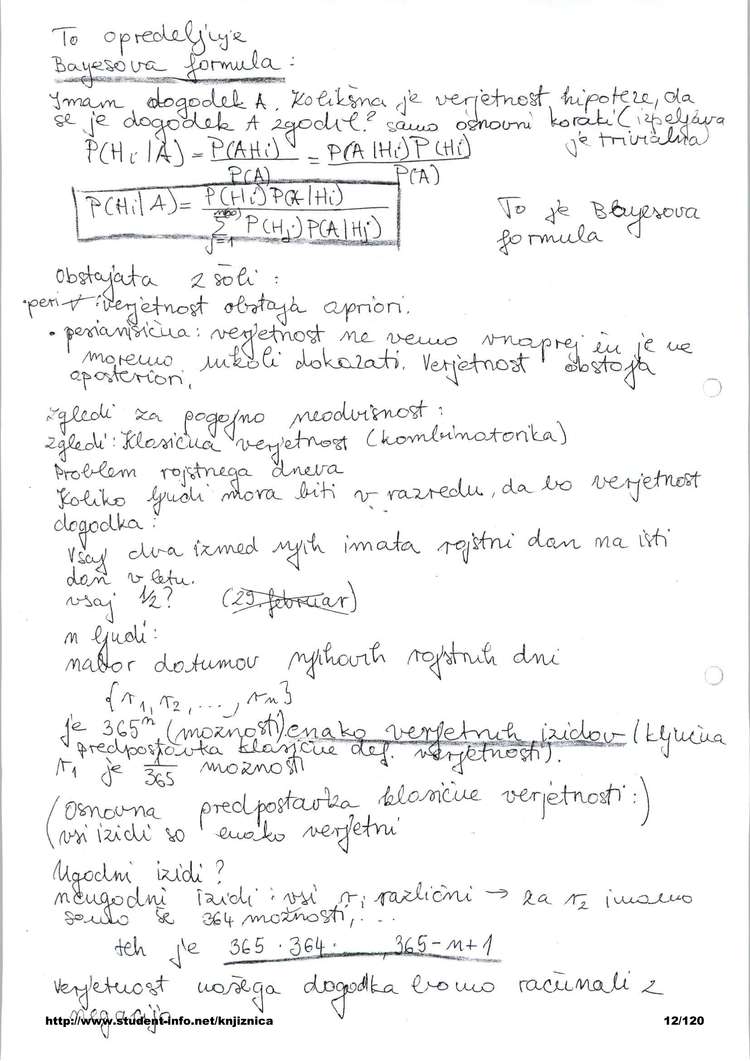 To opredeljuje
Bayesova formula:
Imam dogodek A. Kolikšna je verjetnost hipoteze, da
se je dogodek A zgodil? samo osnovni koraki (izpeljava
je trivialna)
P(Hi|A) = P(AHi)/P(A) = P(A|Hi)P(Hi)/P(A)
P(Hi|A) = P(Hi)P(A|Hi) / Σ j=1 P(Hj)P(A|Hj)
To je Bayesova
formula
Obstajata 2 šoli:
verjetnost obstaja apriori.
verjetnost ne vemo vnaprej in je ne
moremo nikoli dokazati. Verjetnost obstoja
aposteriori.
Zgledi za pogojno neodvisnost:
Zgledi: Klasična verjetnost (kombinatorika)
Problem rojstnega dneva
Koliko ljudi mora biti v razredu, da bo verjetnost
dogodka:
Vsaj dva izmed njih imata rojstni dan na isti
dan v letu.
vsaj 1/2? (29. februar)
n ljudi:
nabor datumov njihovih rojstnih dni
{r1, r2, ..., rn}
je 365^n (možnosti) enako verjetnih izidov (ključna
predpostavka klasične def. verjetnosti).
r1 je 365 možnosti
(Osnovna predpostavka klasične verjetnosti:)
(vsi izidi so enako verjetni
Ugodni izidi?
neugodni izidi: vsi ri različni → za r2 imamo
samo še 364 možnosti, ...
teh je 365 · 364 · ... 365-n+1
Verjetnost našega dogodka bomo računali z
negacijo
http://www.student-info.net/knjiznica 12/120